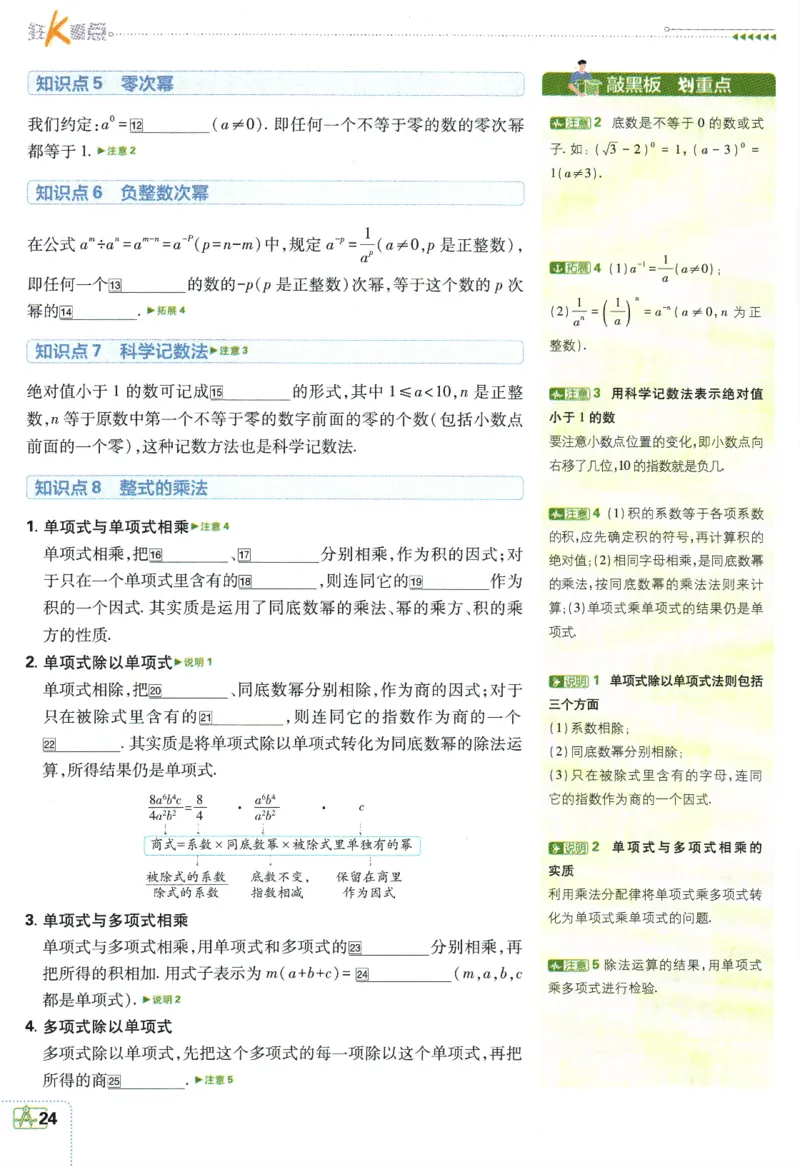 知识点5 零次幂
我们约定:a⁰=⑫________(a≠0). 即任何一个不等于零的数的零次幂
都等于1. ▶注意2
知识点6 负整数次幂
在公式 aᵐ÷aⁿ=aᵐ⁻ⁿ=a⁻ᴾ(p=n-m)中,规定 a⁻ᵖ=1/aᵖ(a≠0,p 是正整数),
即任何一个⑬________的数的-p(p 是正整数)次幂,等于这个数的 p 次
幂的⑭________. ▶拓展4
知识点7 科学记数法▶注意3
绝对值小于 1 的数可记成⑮________的形式,其中 1≤a<10,n 是正整
数,n 等于原数中第一个不等于零的数字前面的零的个数(包括小数点
前面的一个零),这种记数方法也是科学记数法.
知识点8 整式的乘法
1. 单项式与单项式相乘▶注意4
单项式相乘,把⑯________、⑰________分别相乘,作为积的因式;对
于只在一个单项式里含有的⑱________,则连同它的⑲________作为
积的一个因式. 其实质是运用了同底数幂的乘法、幂的乘方、积的乘
方的性质.
2. 单项式除以单项式▶说明1
单项式相除,把⑳________、同底数幂分别相除,作为商的因式;对于
只在被除式里含有的㉑________,则连同它的指数作为商的一个
㉒________. 其实质是将单项式除以单项式转化为同底数幂的除法运
算,所得结果仍是单项式.
8a⁶b⁴c/4a²b²=8/4 · a⁶b⁴/a²b² · c
商式=系数×同底数幂×被除式里单独有的幂
被除式的系数 底数不变, 保留在商里
除式的系数 指数相减 作为因式
3. 单项式与多项式相乘
单项式与多项式相乘,用单项式和多项式的㉓________分别相乘,再
把所得的积相加. 用式子表示为 m(a+b+c)=㉔________(m,a,b,c
都是单项式). ▶说明2
4. 多项式除以单项式
多项式除以单项式,先把这个多项式的每一项除以这个单项式,再把
所得的商㉕________. ▶注意5
敲黑板 划重点
注意2 底数是不等于 0 的数或式
子. 如:(√3-2)⁰=1,(a-3)⁰=
1(a≠3).
拓展4 (1)a⁻¹=1/a(a≠0);
(2)1/aⁿ=(1/a)ⁿ=a⁻ⁿ(a≠0,n 为正
整数).
注意3 用科学记数法表示绝对值
小于 1 的数
要注意小数点位置的变化,即小数点向
右移了几位,10的指数就是负几.
注意4 (1)积的系数等于各项系数
的积,应先确定积的符号,再计算积的
绝对值;(2)相同字母相乘,是同底数幂
的乘法,按同底数幂的乘法法则来计
算;(3)单项式乘单项式的结果仍是单
项式.
说明1 单项式除以单项式法则包括
三个方面
(1)系数相除;
(2)同底数幂分别相除;
(3)只在被除式里含有的字母,连同
它的指数作为商的一个因式.
说明2 单项式与多项式相乘的
实质
利用乘法分配律将单项式乘多项式转
化为单项式乘单项式的问题.
注意5 除法运算的结果,用单项式
乘多项式进行检验.
A 24